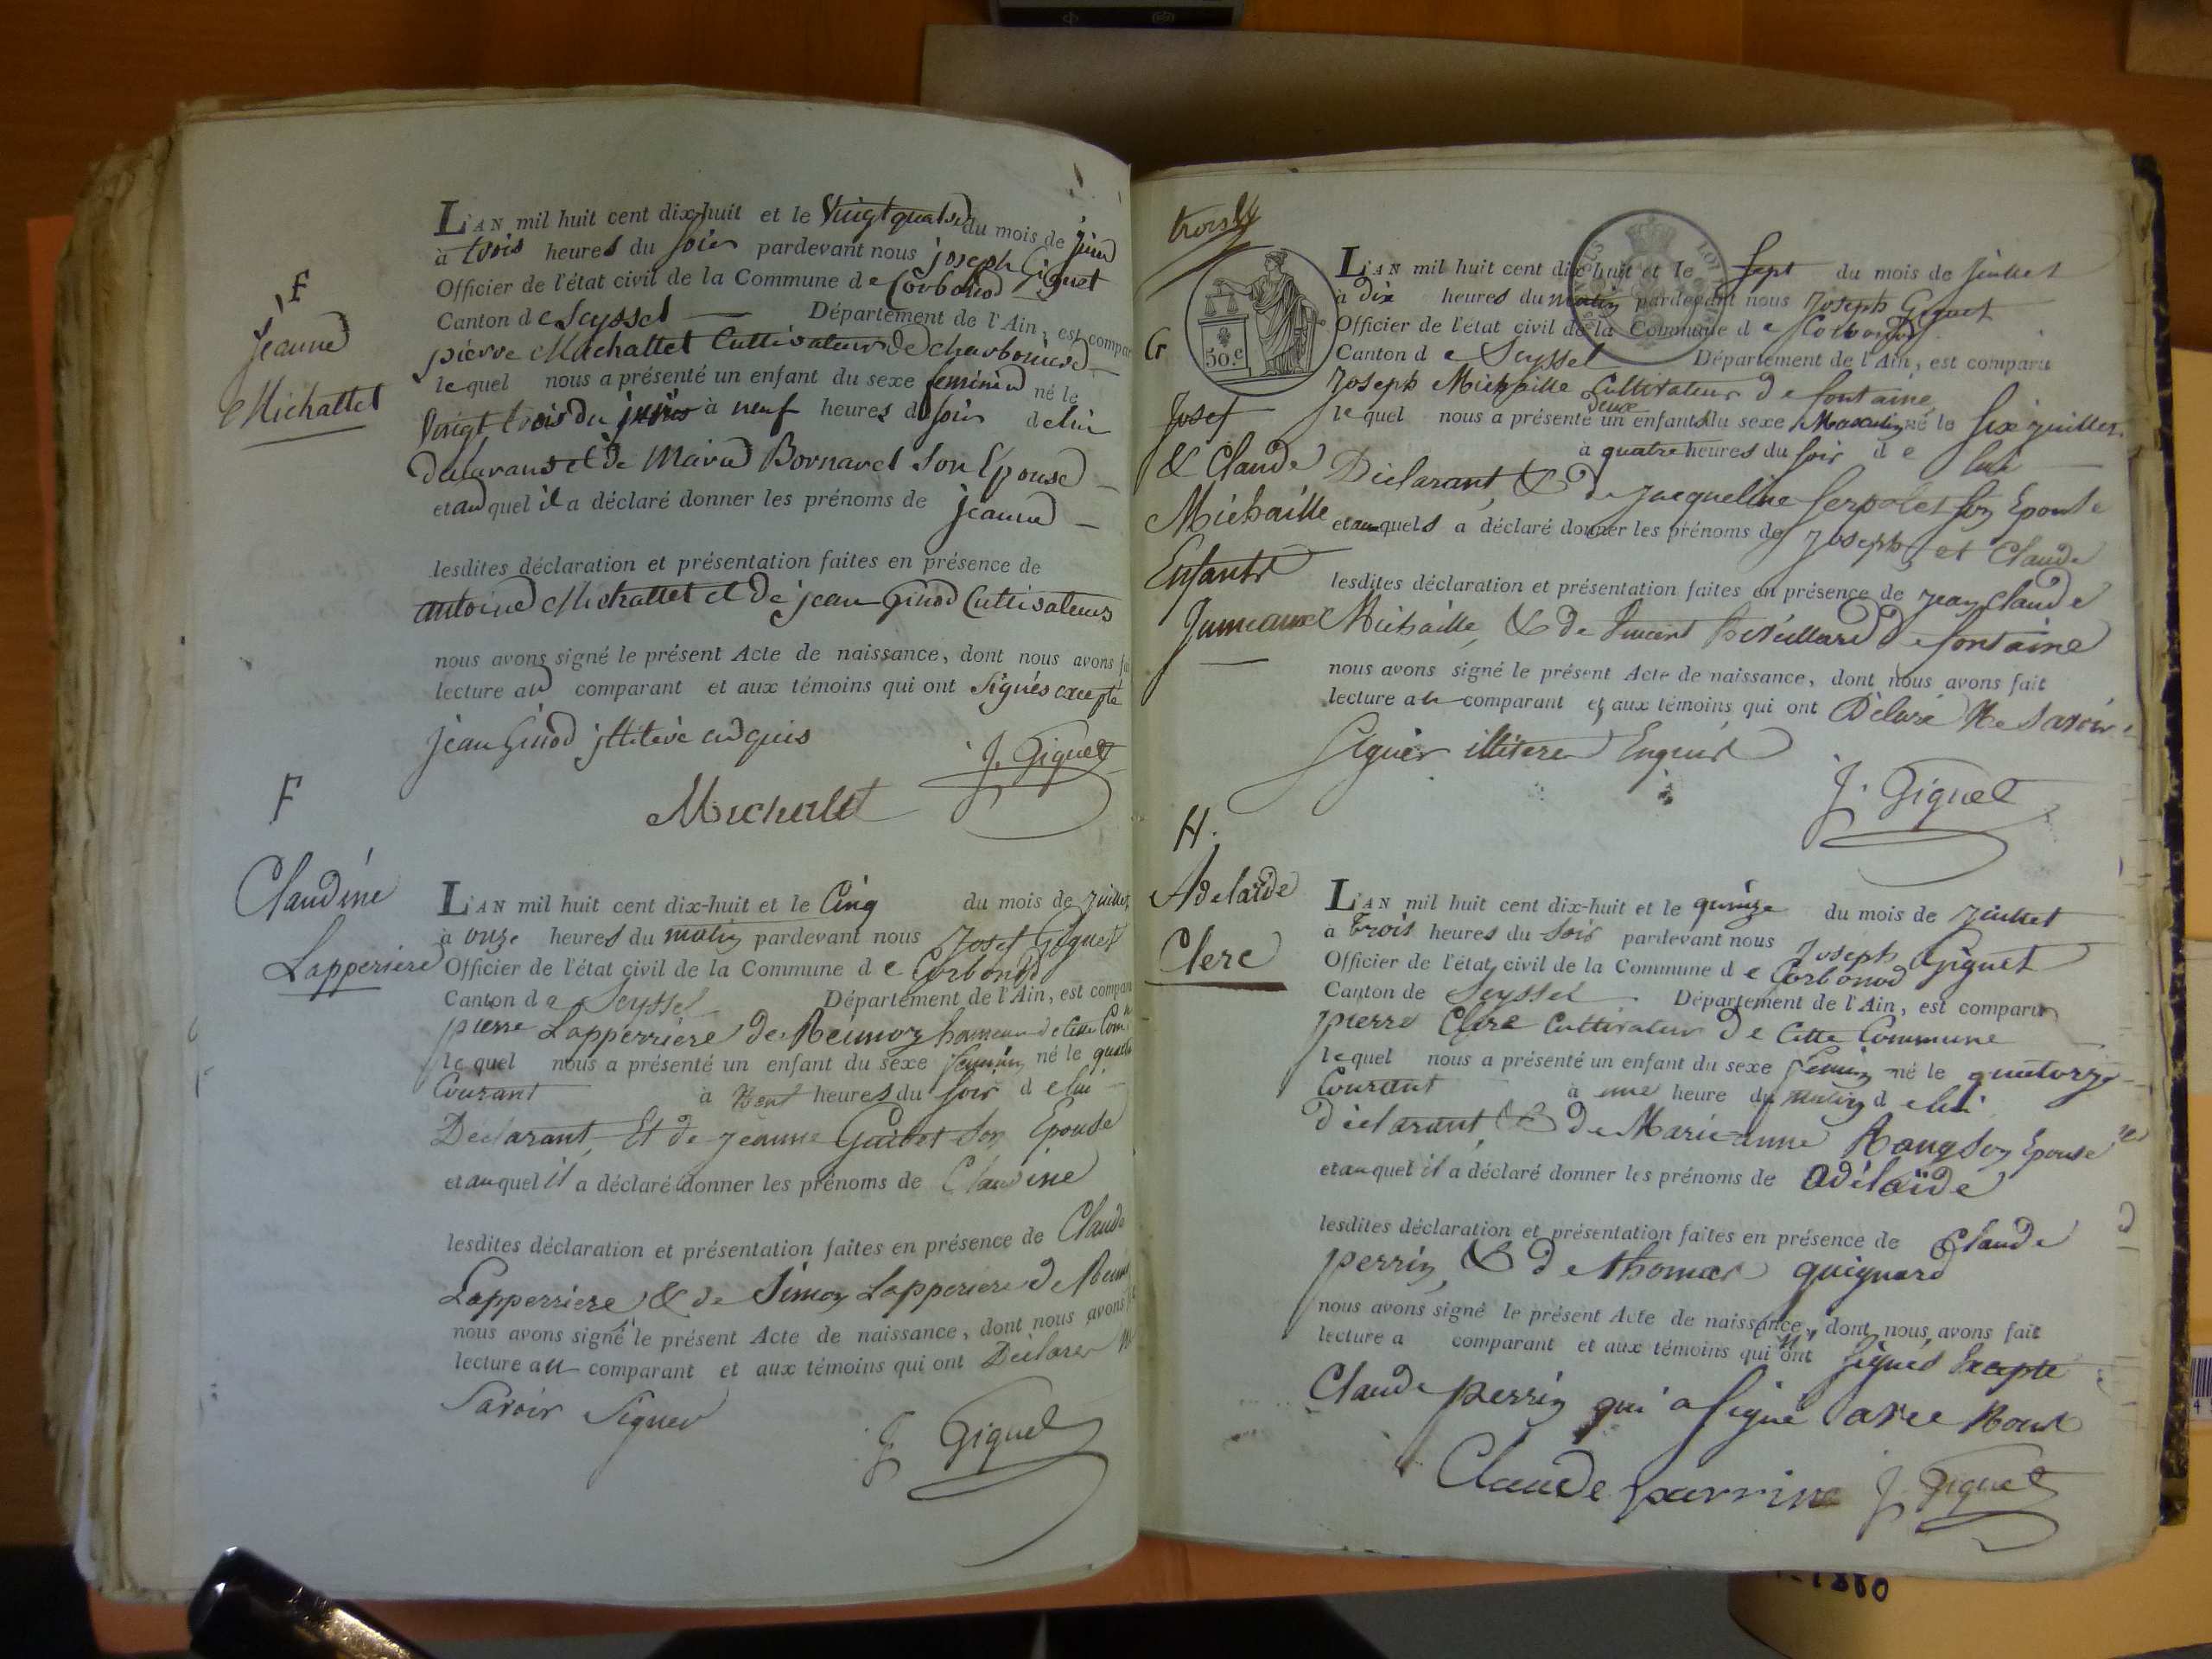 F
Jeanne
Michallet
L'AN mil huit cent dix-huit et le Vingt quatre du mois de juin
à trois heures du soir pardevant nous joseph Giguet
Officier de l'état civil de la Commune de Corbonod
Canton de Seyssel Département de l'Ain, est compar
pierre Michallet Cultivateur de charbonierd
lequel nous a présenté un enfant du sexe feminin né le
Vingt trois du juin à neuf heures du soir de lui
declarant et de Marie Bornarel son Epouse
et au quel il a déclaré donner les prénoms de jeanne
lesdites déclaration et présentation faites en présence de
antoine Michallet et de jean Ginod Cultivateurs
nous avons signé le présent Acte de naissance, dont nous avons
lecture au comparant et aux témoins qui ont signés excepté
jean Ginod
J. Giguet
Michalet
F
Claudine
Lapperiere
L'AN mil huit cent dix-huit et le Cinq du mois de juillet
à onze heures du matin pardevant nous Josef Giguet
Officier de l'état civil de la Commune de Corbonod
Canton de Seyssel Département de l'Ain, est compar
pierre Lapperriere de Reimoz hameau de Cette Com
lequel nous a présenté un enfant du sexe feminin né le quatre
Courant à neuf heures du soir de lui
Declarant, Et de jeanne Guibot Son Epouse
et au quel il a déclaré donner les prénoms de Claudine
lesdites déclaration et présentation faites en présence de Claude
Lapperriere & de Simon Lapperiere de
nous avons signé le présent Acte de naissance, dont nous avons
lecture au comparant et aux témoins qui ont Déclarer
Savoir Signer
J. Giguet
trois
G
50.c
Josef
& Claude
Michaille
Enfants
Jumeaux
L'AN mil huit cent dix-huit et le Sept du mois de juillet
à dix heures du matin pardevant nous Joseph Giguet
Officier de l'état civil de la Commune de Corbonod
Canton de Seyssel Département de l'Ain, est comparu
Joseph Michaille Cultivateur de fontaine
lequel nous a présenté deux enfants du sexe Masculin né le six juillet
à quatre heures du soir de lui
Déclarant, & de jacqueline Serpolet son Epouse
et auquels a déclaré donner les prénoms de joseph et Claude
lesdites déclaration et présentation faites en présence de jean Claude
Michaille, & de Vincent de fontaine
nous avons signé le présent Acte de naissance, dont nous avons fait
lecture au comparant et aux témoins qui ont Déclaré Ne Savoir
Signer illiterer Enquis
J. Giguet
H.
Adelaïde
Clerc
L'AN mil huit cent dix-huit et le quinze du mois de juillet
à trois heures du soir pardevant nous Joseph Giguet
Officier de l'état civil de la Commune de Corbonod
Canton de Seyssel Département de l'Ain, est comparu
pierre Clerc Cultivateur de Cette Commune
lequel nous a présenté un enfant du sexe feminin né le quatorze
Courant à une heure du matin de lui
déclarant, & de Marie anne son Epouse
et au quel il a déclaré donner les prénoms de adélaïde
lesdites déclaration et présentation faites en présence de Claude
perrin, & de thomas guignard
nous avons signé le présent Acte de naissance, dont nous avons fait
lecture a comparant et aux témoins qui n'ont signés Excepté
Claude perrin qui a signé avec Nous
Claude parrin J. Giguet